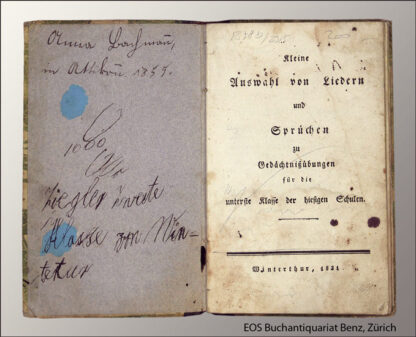 Anna Bachmañ,
in Attikoñ 1855.
1000
Ziegler zweite
Klasse von Win=
tertur
Kleine
Auswahl von Liedern
und
Sprüchen
zu
Gedächtnißübungen
für die
unterste Klasse der hiesigen Schulen.
Winterthur, 1821
EOS Buchantiquariat Benz, Zürich